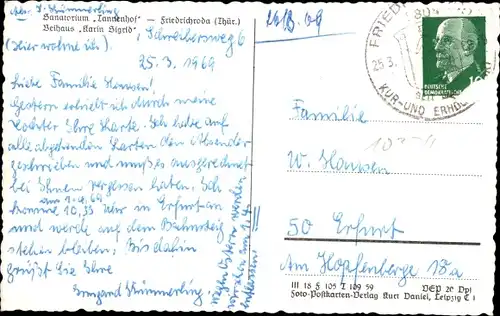 Abs. I. Kümmerling
Sanatorium „Tannenhof" – Friedrichroda (Thür.)
Beihaus „Karin Sigrid"
(Hier wohne ich) Schreibersweg 6
25.3.1969
Liebe Familie Hansen!
Gestern erhielt ich durch meine
Tochter Ihre Karte. Ich habe auf
alle abgehenden Karten den Absender
geschrieben und muß es ausgerechnet
bei Ihnen vergessen haben. Ich
komme am 1.4.69 10,35 Uhr in Erfurt an
und werde auf dem Bahnsteig
stehen bleiben. Bis dahin
grüßt Sie Ihre
Irmgard Kümmerling.
FRIED
25.3.
KUR-UND ERHOL
DEUTSCHE
10
Familie
W. Hansen
50 Erfurt
Am Hopfenberge 18a
III 18 F 105 T 109 59 DEP 20 Dpf
Foto-Postkarten-Verlag Kurt Daniel, Leipzig C 1